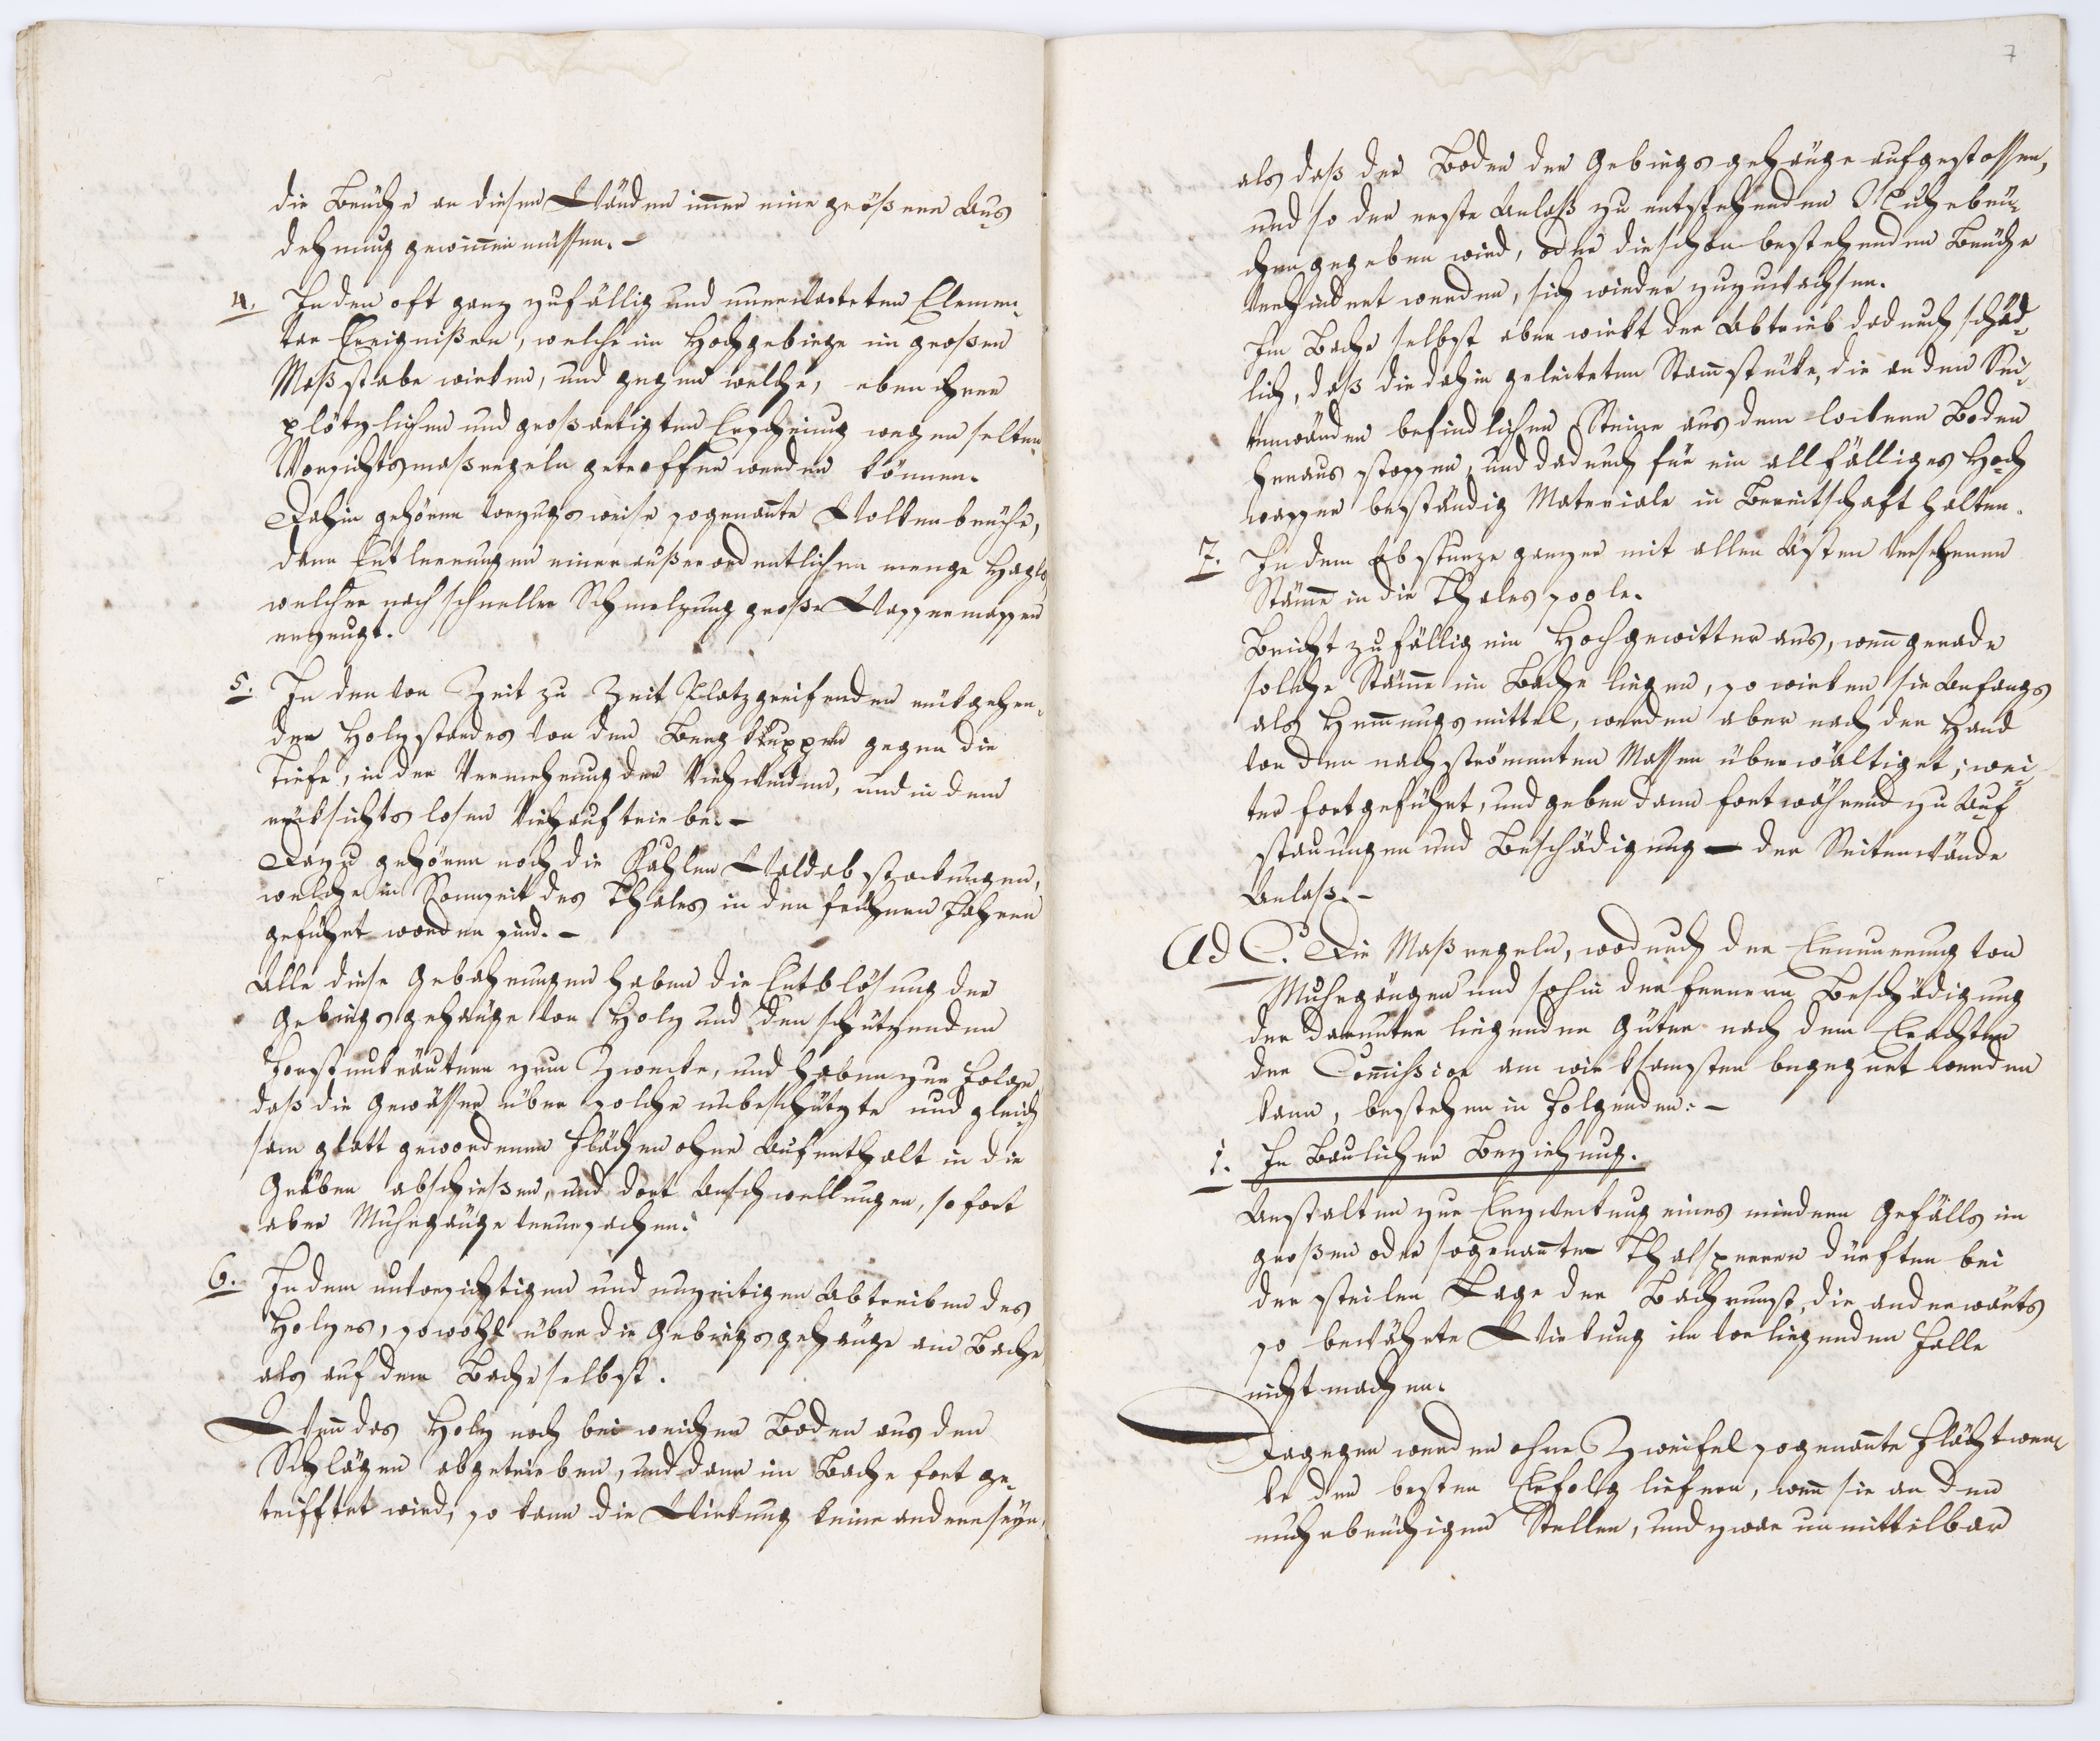 die Brüche an diesen Wänden immer eine größere Aus
dehnung gewinnen müssen. –
4. In den oft ganz zufällig und unerwarteten Elemen-
tar Ereignißen, welche im Hochgebirge im großen
Maßstabe wirken, und gegen welche, eben ihrer
plötzlichen und großartigsten Erscheinung wegen selten
Vorsichtsmaßregeln getroffen werden können.
Dahin gehören vorzugsweise sogenannte Wolkenbrüche,
dann Entleerungen einer außerordentlichen menge Hagls
welcher nach schneller Schmelzung große Wassermassen
erzeugt.
5. In den von Zeit zu Zeit Platzgreifenden rükgehen-
den Holzstandes von den Bergkuppen gegen die
Tiefe, in der Vermehrung der Viehweiden, und in dem
rüksichtslosen Viehauftriebe. –
Dazu gehören noch die Kahlen Waldabstockungen,
welche in Sonnseit des Thales in den frühern Jahren
geführt worden sind. –
Alle diese Gebahrungen haben die Entblösung der
Gebirgsgehänge von Holz und den schützenden
Forstunkräutern zum Zwecke, und haben zur Folge
daß die Gewässer über solche unbeschützte und gleich
sam glatt gewordenen Flächen ohne Aufenthalt in die
Gräben abschießen, und dort Anschwellungen, sofort
aber Muhrgänge verursachen.
6. In dem unvorsichtigen und unzeitigen Abtreiben des
Holzes, sowohl über die Gebirgsgehänge am Bache
als auf dem Bache selbst.
Wenn das Holz noch bei weichen Boden aus den
Schlägen abgetrieben, und dann im Bache fort ge-
trifftet wird, so kann die Wirkung keine andere seyn,
7
als daß der Boden der Gebirgsgehänge aufgestossen,
und so der erste Anlaß zu entstehenden Muhrbrü-
chen gegeben wird, oder die schon bestehenden Brüche
verhindert werden, sich wieder zuzuwachsen.
Im Bache selbst aber wirkt der Abtrieb dadurch schäd-
lich, daß die dahin geleiteten Stammstüke, die an den Sei-
tenwänden befindlichen Steine aus dem lockern Boden
heraus stossen, und dadurch für ein allfälliges Hoch
wasser beständig Materiale in Bereitschaft halten.
7. In dem Abstürze ganzer mit allen Ästen versehenen
Stämme in die Thalessoole.
Bricht zufällig ein Hochgewitter aus, wenn gerade
solche Stämme im Bache liegen, so wirken sie Anfangs
als Hemmungsmittel, werden aber nach der Hand
von den nachströmenten Massen überwältiget, wei-
ter fortgeführt, und geben dann fortwährend zu Auf
stauungen und Beschädigung – der Seitenwände
Anlaß. –
Ad C. Die Maßregeln, wodurch der Erneuerung von
Muhrgängen und sohin der fernern Beschädigung
der darunter liegenden Güter nach dem Erachten
der Commission am wirksamsten begegnet werden
kann, bestehen in Folgenden: –
1. In Baulicher Beziehung.
Anstalten zur Erzweckung eines mindern Gefälls im
großen oder sogenannten Thalsperren dürften bei
der steilen Lage der Bachrunst, die anderwärts
so bewährte Wirkung im vorliegenden Falle
nicht machen.
Dagegen werden ohne Zweifel sogenannte Flächtwer-
ke den besten Erfolg liefern, wenn sie an den
muhrbrüchigen Stellen, und zwar unmittelbar